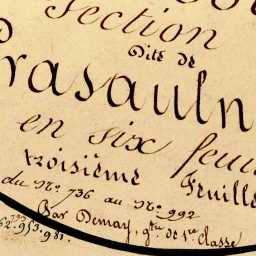 Section
Dite de
Prasauln
en six feui
troisième Feuille
du N.º 736 au N.º 992
Par Demay, g.tre de 1.re Classe
62.953.981.